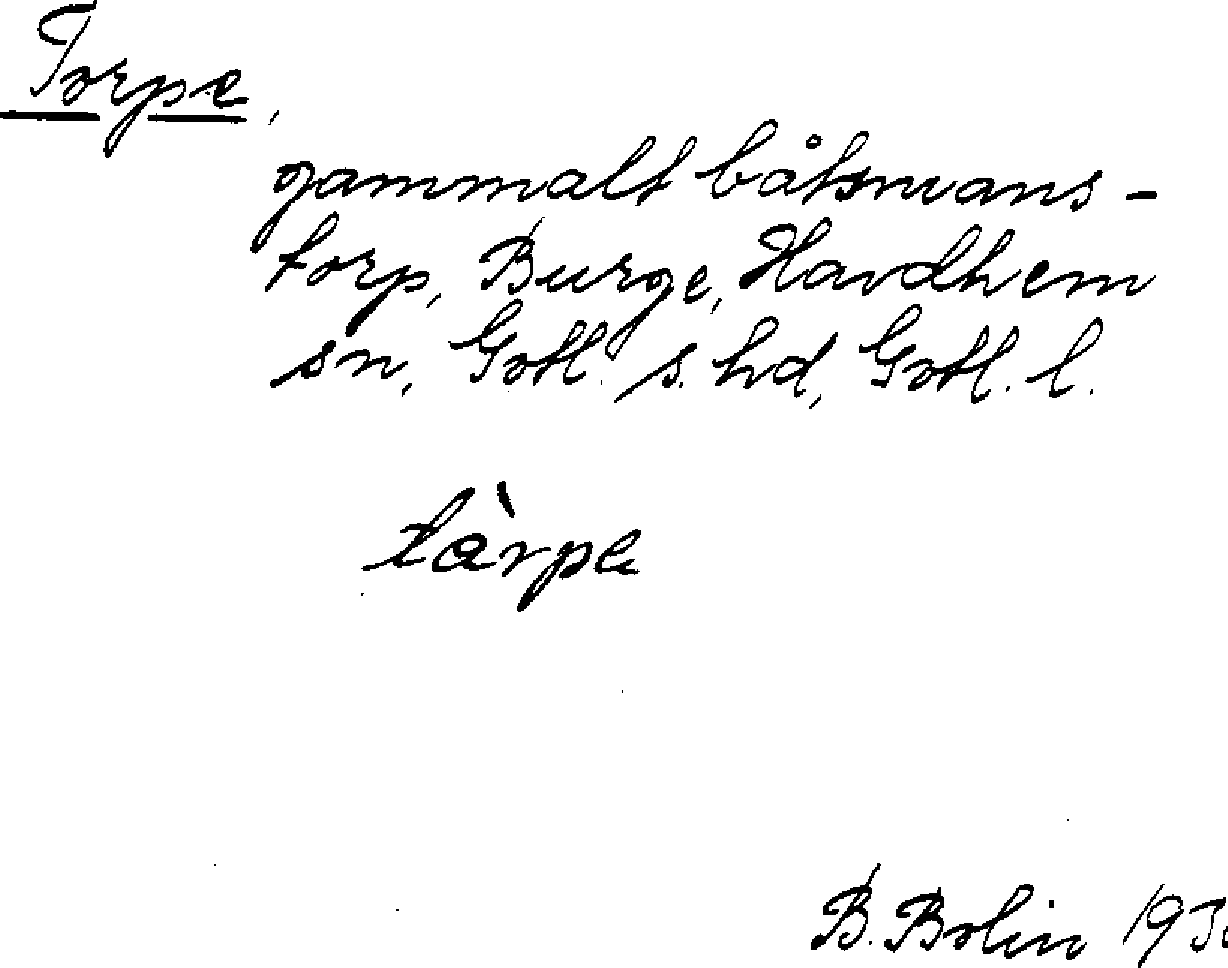 Torpe,
gammalt båtsmans-
torp, Burge, Havdhem
sn, Gotl. s. hd, Gotl. l.
tàrpe
B. Bolin